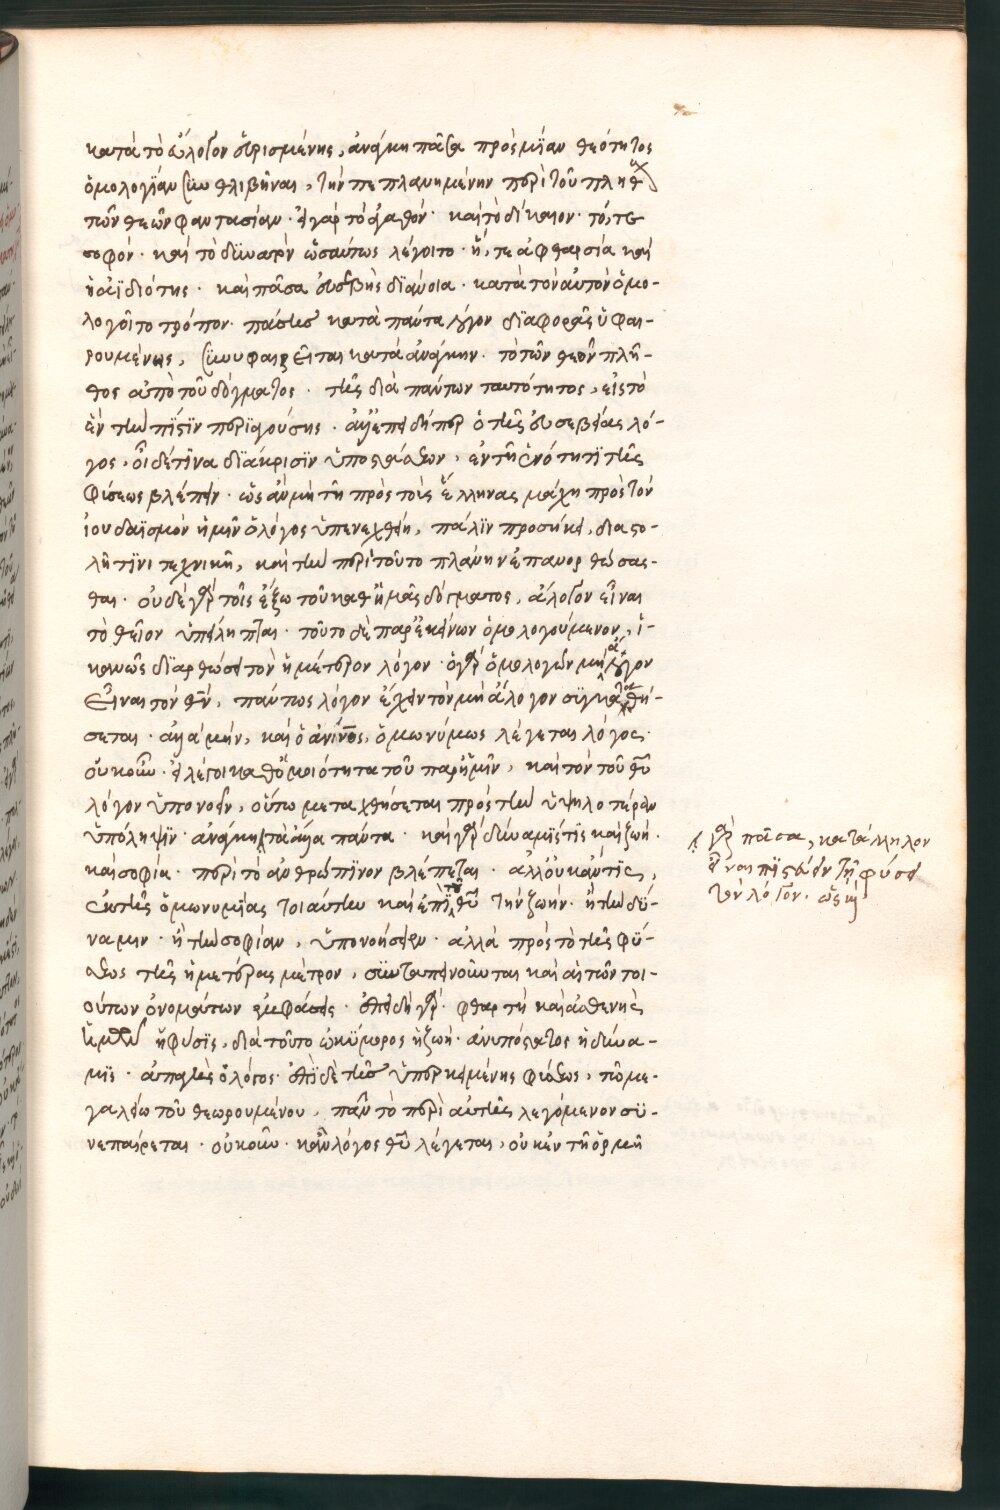 κατὰ τὸ εὔλογον ὁρισμένης, ἀνάγκη πᾶσα πρὸς μίαν θεότητος
ὁμολογίαν συνθλιβῆναι, τὴν πεπλανημένην περὶ τοῦ πλήθους
τῶν θεῶν φαντασίαν. εἰ γὰρ τὸ ἀγαθόν. καὶ τὸ δίκαιον. τό, τε
σοφόν. καὶ τὸ δυνατὸν ὡσαύτως λέγοιτο. ἥ, τε ἀφθαρσία καὶ
ἡ ἀϊδιότης. καὶ πᾶσα εὐσεβὴς διάνοια. κατὰ τὸν αὐτὸν ὁμο-
λογοῖτο τρόπον. πάσης κατὰ πάντα λόγον διαφορᾶς ὑφαι-
ρουμένης, συνυφαιρεῖται κατὰ ἀνάγκην. τὸ τῶν θεῶν πλῆ-
θος ἀπὸ τοῦ δόγματος. τῆς διὰ πάντων ταυτότητος, εἰς τὸ
ἓν τὴν πίστιν περιαγούσης. ἀλλ' ἐπειδήπερ ὁ τῆς εὐσεβείας λό-
γος, οἶδέ τινα διάκρισιν ὑποστάσεων, ἐν τῇ ἑνότητι τῆς
φύσεως βλέπειν. ὡς ἂν μὴ τῇ πρὸς τοὺς ἕλληνας μάχῃ πρὸς τὸν
ἰουδαϊσμὸν ἡμῖν ὁ λόγος ὑπενεχθείη, πάλιν προσήκει, διαστο-
λῇ τινι τεχνικῇ, καὶ τὴν περὶ τοῦτο πλάνην ἐπανορθώσασ-
θαι. οὐδὲ γὰρ τοῖς ἔξω τοῦ καθ' ἡμᾶς δόγματος, ἄλογον εἶναι
τὸ θεῖον ὑπείληπται. τοῦτο δὲ παρ' ἐκείνων ὁμολογούμενον, ἱ-
κανῶς διαρθώσει τὸν ἡμέτερον λόγον. ὁ γὰρ ὁμολογῶν μὴ ἄλογον
εἶναι τὸν θν, πάντως λόγον ἔχειν τὸν μὴ ἄλογον συγκαταθή-
σεται. ἀλλὰ μήν, καὶ ὁ ἀνινος, ὁμωνύμως λέγεται λόγος.
οὐκοῦν. εἰ λέγοι καθ' ὁμοιότητα τοῦ παρ' ἡμῖν, καὶ τὸν τοῦ θυ
λόγον ὑπονοεῖν, οὕτω μεταχθήσεται πρὸς τὴν ὑψηλοτέραν
ὑπόληψιν. ἀνάγκη τὰ ἄλλα πάντα. καὶ γὰρ δύναμίς τις καὶ ζωή.
καὶ σοφία. περὶ τὸ ἀνθρώπινον βλέπεται. ἀλλ' οὐκ ἄν τις,
ἐκ τῆς ὁμωνυμίας τοιαύτην καὶ ἐπὶ τοῦ θυ τὴν ζωήν. ἢ τὴν δύ-
ναμιν. ἢ τὴν σοφίαν, ὑπονοήσειεν. ἀλλὰ πρὸς τὸ τῆς φύ-
σεως τῆς ἡμετέρας μέτρον, συνταπεινοῦνται καὶ αἱ τῶν τοι-
ούτων ὀνομάτων ἐμφάσεις. ἐπειδὴ γὰρ. φθαρτὴ καὶ ἀσθενὴς
ἡμῶν ἡ φύσις, διὰ τοῦτο ὠκύμορος ἡ ζωή. ἀνυπόστατος ἡ δύνα-
μις. ἀπαγὴς ὁ λόγος. ἐπὶ δὲ τῆς ὑπερκειμένης φύσεως, τῷ με-
γαλείῳ τοῦ θεωρουμένου, πᾶν τὸ περὶ αὐτῆς λεγόμενον συ-
νεπαίρεται. οὐκοῦν. κἂν λόγος θυ λέγεται, οὐκ ἐν τῇ ὁρμῇ
γὰρ πᾶσα, κατάλληλον
εἶναι πιστεύειν τῇ φύσει
τὸν λόγον. ὡς καὶ